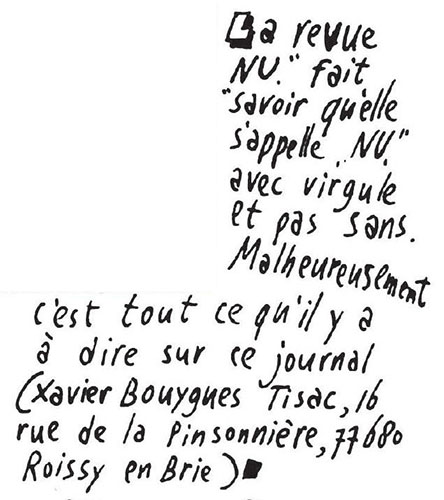 La revue
NU." fait
"savoir qu'elle
s'appelle "NU,"
avec virgule
et pas sans.
Malheureusement
c'est tout ce qu'il y a
à dire sur ce journal
(Xavier Bouygues Tisac, 16
rue de la Pinsonnière, 77680
Roissy en Brie)